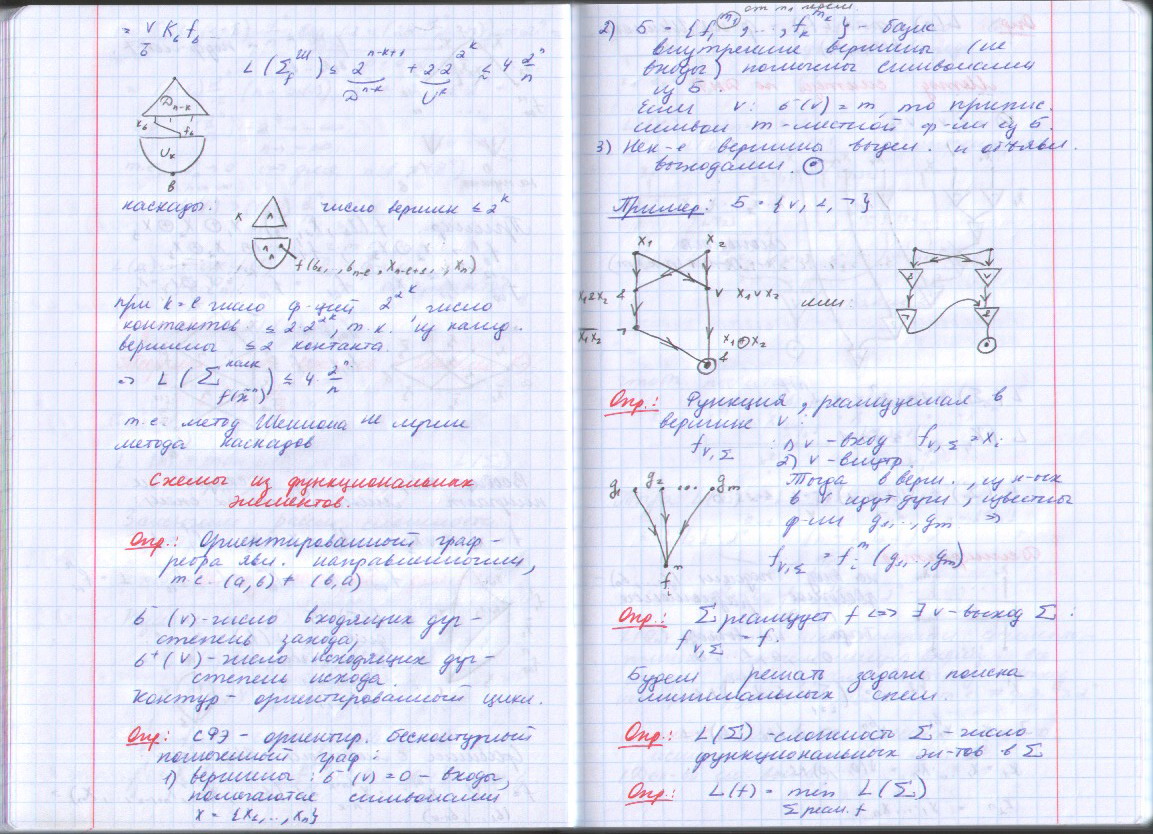 = V K_б f_б
б
L(Σ_f^Ш) ≤ 2^{n-k+1} + 2·2^{2^k} ≲ 4 2^n/n
D^{n-k} U^k
D_{n-k}
x_б f_б
U_k
в
каскады: число вершин ≤ 2^k
к
f(б_1, , б_{n-e}, x_{n-e+1}, , x_n)
при k = e число ф-ций 2^{2^k}, число
контактов ≤ 2·2^{2^k}, т.к. из кажд.
вершины ≤ 2 контакта.
⇒ L(Σ^{каск}_{f(x̃^n)}) ≲ 4·2^n/n
т.е. метод Шеннона не лучше
метода каскадов
Схемы из функциональных
элементов.
Опр.: Ориентированный граф -
ребра явл. направленными,
т.е. (a,b) ≠ (b,a)
б^-(v) - число входящих дуг -
степень захода
б^+(v) - число исходящих дуг -
степень исхода.
Контур - ориентированный цикл.
Опр: СФЭ - ориентир. бесконтурный
помеченный граф:
1) вершины: б^-(v) = 0 - входы,
помечаются символами
X = {x_1, .., x_n}
от m_1 перем.
2) Б = {f_1^{m_1}, ..., f_k^{m_k}} - базис
внутренние вершины (не
входы) помечены символами
из Б
Если v: б^-(v) = m, то припис.
символ m-местной ф-ии из Б.
3) Нек-е вершины выдел. и объявл.
выходами. ⊙
Пример: Б = {v, &, ¬}
x_1 x_2
x_1 & x_2 & v x_1 v x_2
или:
& v
¬ &
x_1x_2 ¬ x_1 ⊕ x_2
&
Опр.: Функция, реализуемая в
вершине v:
f_{v,Σ} : 1) v - вход f_{v,Σ} = x_i
2) v - внутр.
g_1 g_2 ... g_m Тогда в верш., из к-ых
в v идут дуги, известны
ф-ии g_1, .., g_m ⇒
f_{v,Σ} = f_i^m (g_1, .., g_m)
f_i^m
Опр.: Σ реализует f <=> ∃ v - выход Σ:
f_{v,Σ} = f.
Будем решать задачи поиска
минимальных схем.
Опр: L(Σ) - сложность Σ - число
функциональных эл-тов в Σ
Опр: L(f) = min L(Σ)
Σ реал. f